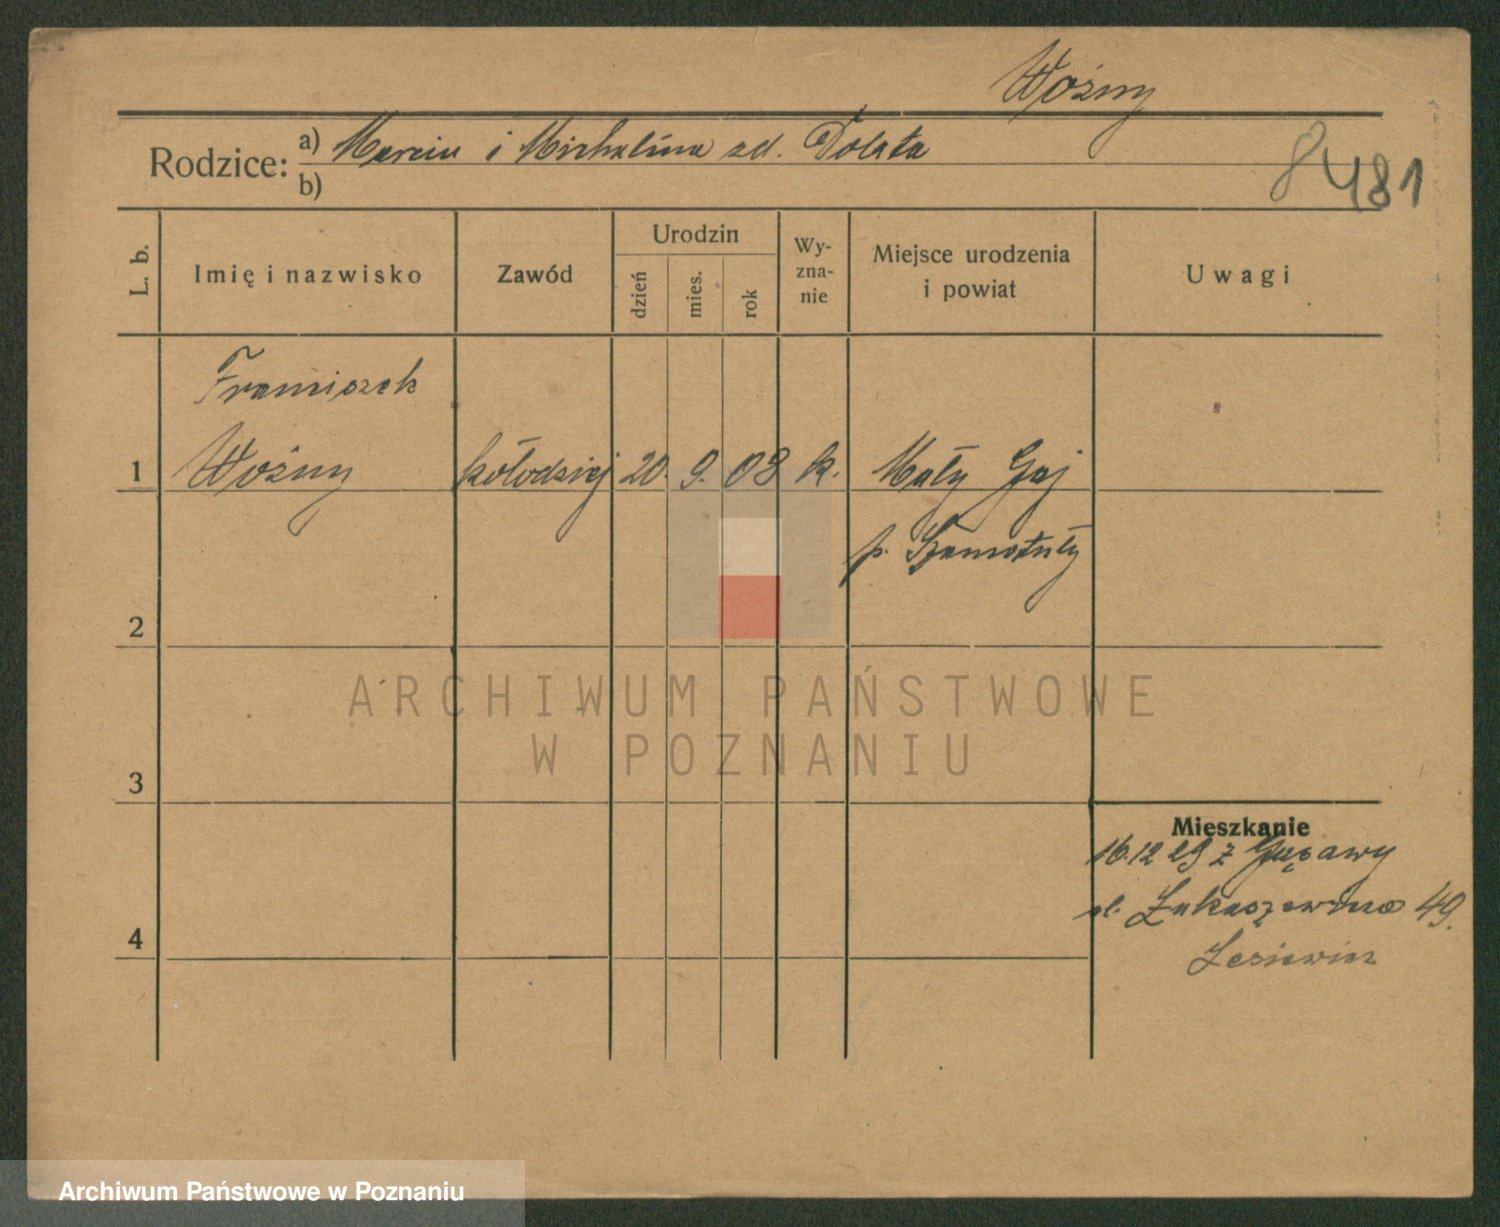 Woźny
Rodzice: a) Marcin i Michalina zd. Dolata
b)
8481
L. b.
Imię i nazwisko
Zawód
Urodzin
dzień
mies.
rok
Wy-
zna-
nie
Miejsce urodzenia
i powiat
Uwagi
Franciszek
1 Woźny kołodziej 20. 9. 08 k. Mały Gaj
p. Szamotuły
2
ARCHIWUM PAŃSTWOWE
W POZNANIU
3
Mieszkanie
16.12 29 z
ul. 49.
4
Archiwum Państwowe w Poznaniu